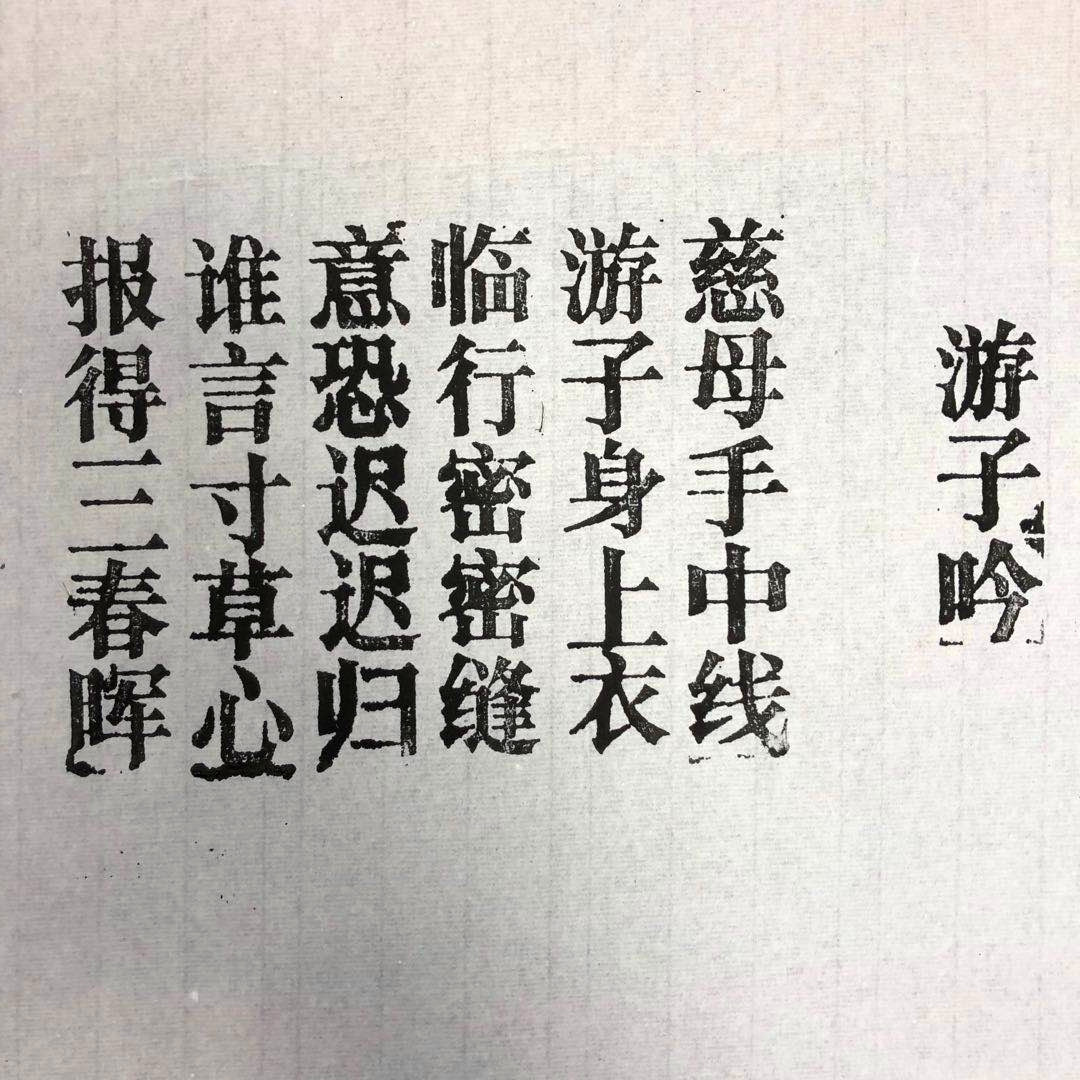 游子吟
慈母手中线
游子身上衣
临行密密缝
意恐迟迟归
谁言寸草心
报得三春晖